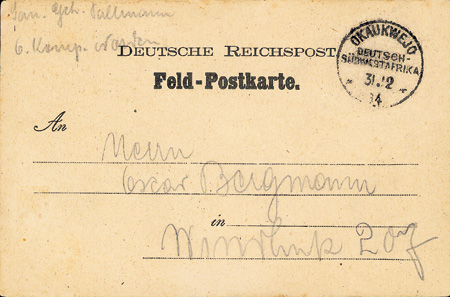 6. Komp. Norden
DEUTSCHE REICHSPOST
Feld-Postkarte.
OKAUKWEJO
DEUTSCH-
SÜDWESTAFRIKA
31.12
04
An
Herrn
Oscar Bergmann
in